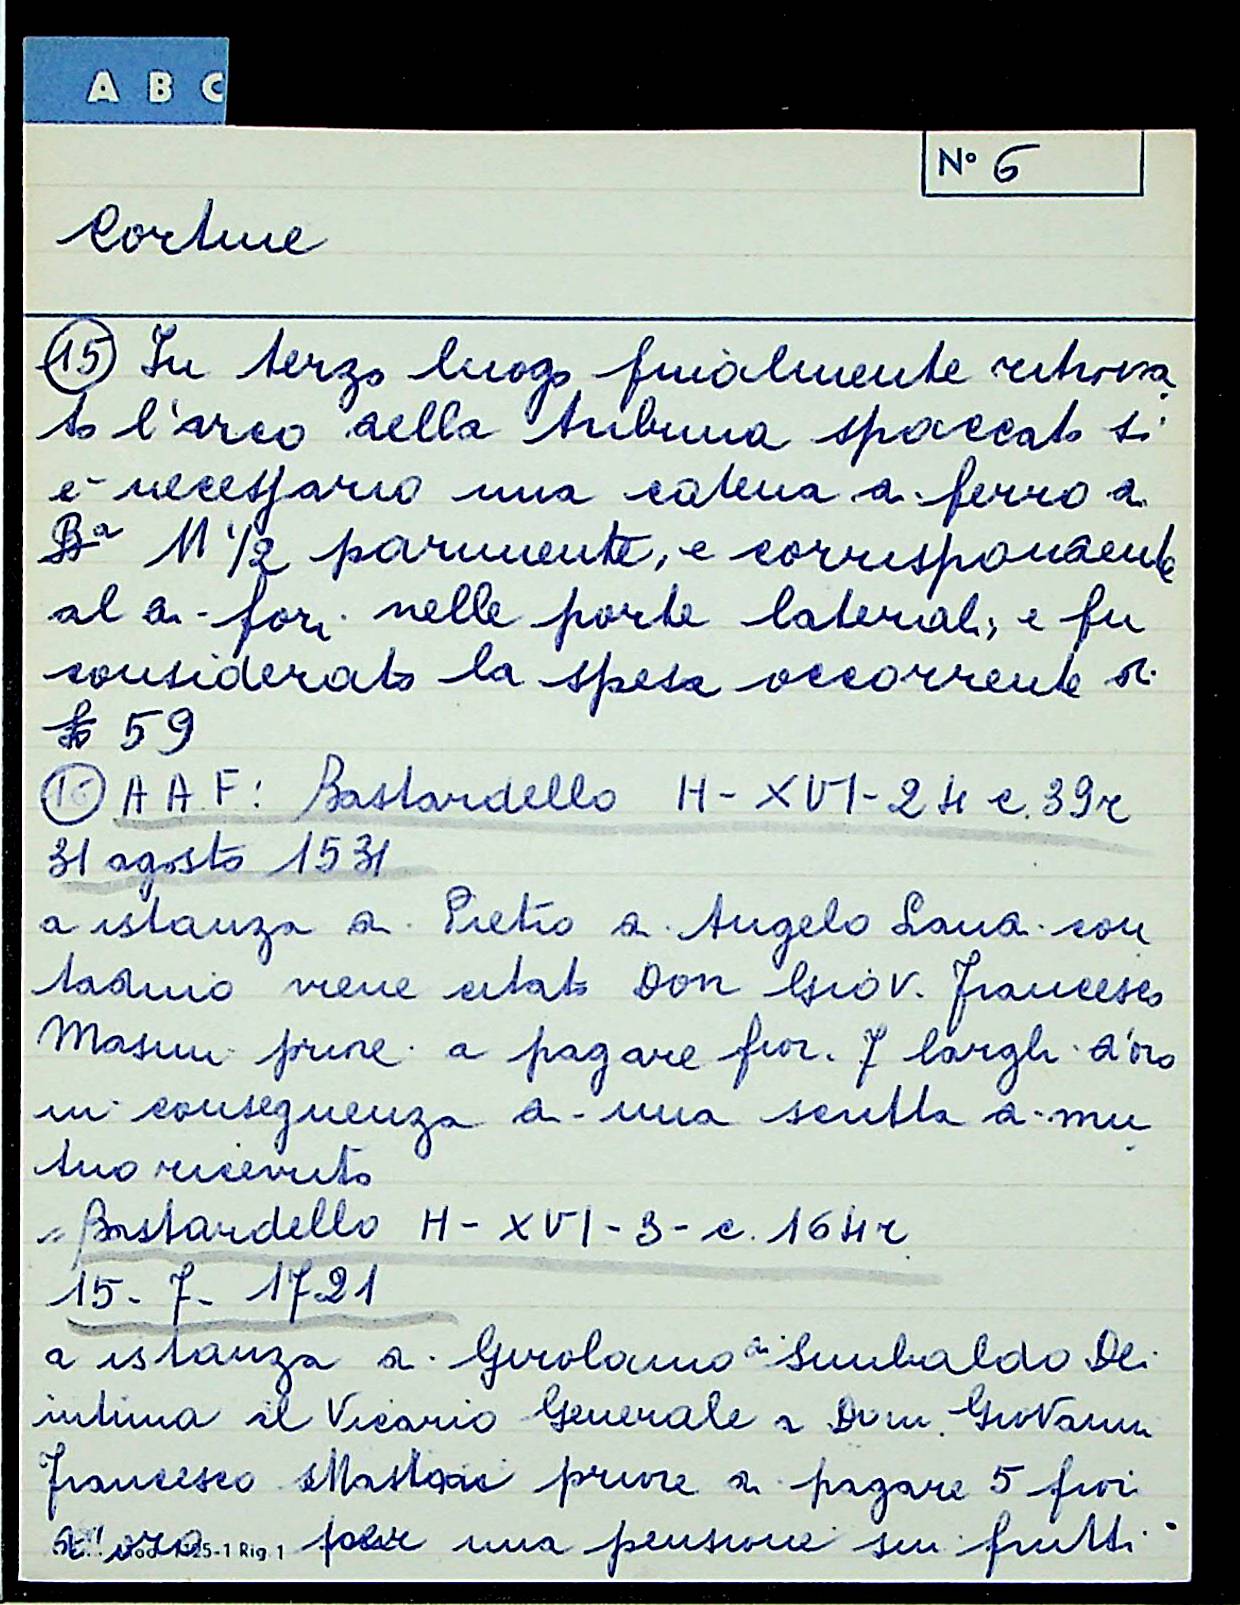 A B C
N° 6
Cortine
(15) In terzo luogo finalmente ritrova
to l'arco della tribuna spaccato si
è necessario una catena di ferro di
Ba 11 1/2 parimente, e corrispondente
al di fori nelle parte laterali, e fu
considerato la spesa occorrente di
59
(16) A A F: Bastardello H-XVI-24 c.39r
31 agosto 1531
a istanza di Pietro di Angelo Lana con
tadino viene citato Don Giov. Francesco
Masini priore a pagare fior. 7 larghi d'oro
in conseguenza di una scritta di mu
tuo ricevuto
Bastardello H-XVI-3-c.164r
15-7-1721
a istanza di Girolamo di Sinibaldo Dei
intima il Vicario Generale a Dom. Giovanni
Francesco priore di pagare 5 fiori
d'oro per una pensione sui frutti
5-1 Rig.1